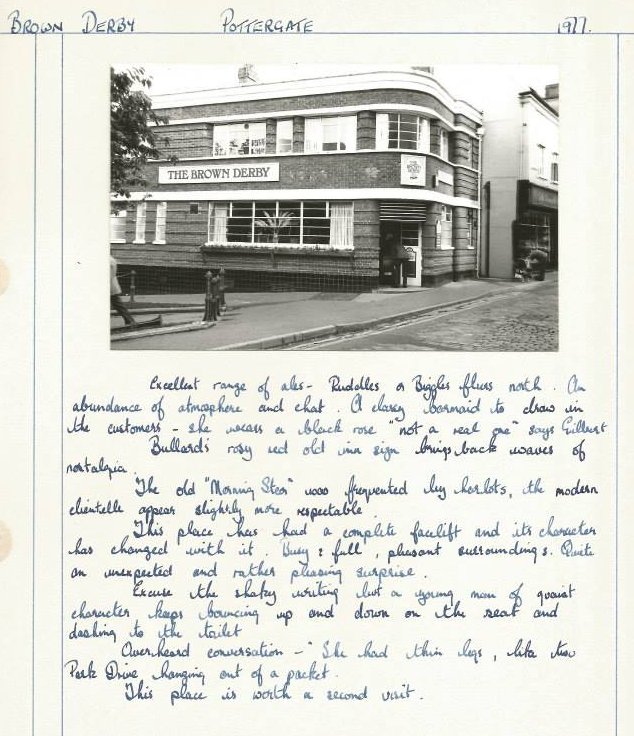 BROWN DERBY POTTERGATE 1977.
THE BROWN DERBY
THE BROWN DERBY
Excellent range of ales - Ruddles or Biggles flies north. An
abundance of atmosphere and chat. A classy barmaid to draw in
the customers - she wears a black rose "not a real one" says Gilbert
Bullard's rosy red old inn sign brings back waves of
nostalgia.
The old "Morning Star" was frequented by harlots, the modern
clientelle appear slightly more respectable.
This place has had a complete facelift and its character
has changed with it. Busy & full, pleasant surroundings. Quite
an unexpected and rather pleasing surprise.
Excuse the shaky writing but a young man of quaint
character keeps bouncing up and down on the seat and
dashing to the toilet
Overheard conversation - "She had thin legs, like two
Park Drive hanging out of a packet.
This place is worth a second visit.